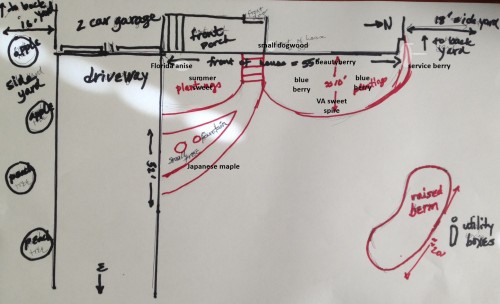 ↑ to back yd
2 car garage
front porch
small dogwood
→ N
18' side yard
16'
↑ to back yard
apple
Florida anise
front of house = 55'
Beautyberry
service berry
side yard
driveway
summer sweet
plantings
blue berry
10'
blue berry
plantings
VA sweet spire
apple
fountain
small trees
Japanese maple
25'
peach tree
raised berm
utility boxes
20'
peach tree
E